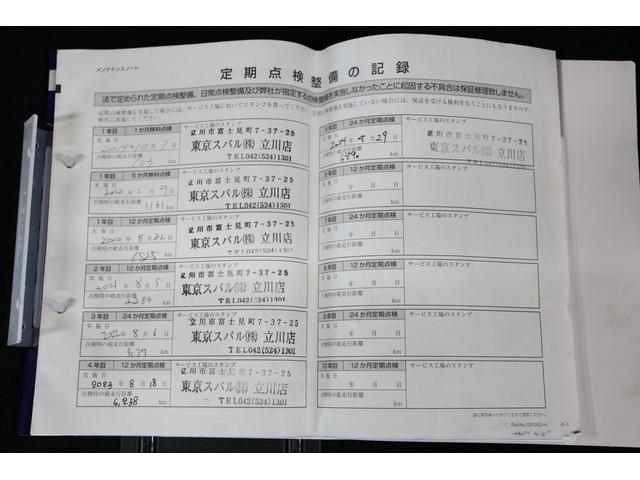 メンテナンスノート
定期点検整備の記録
法で定められた定期点検整備、日常点検整備及び弊社が指定する点検整備を実施しなかったことに起因する不具合は保証修理致しません。
1年目 1か月無料点検
サービス工場のスタンプ
立川市富士見町7-37-25
実施日
2019年10月7日
東京スバル㈱ 立川店
点検時の総走行距離
103 km
TEL042(524)1301
1年目 6か月無料点検
サービス工場のスタンプ
立川市富士見町7-37-25
実施日
2020年2月29日
東京スバル㈱ 立川店
点検時の総走行距離
1161 km
TEL042(524)1301
1年目 12か月定期点検
サービス工場のスタンプ
立川市富士見町7-37-25
実施日
2020年8月22日
東京スバル㈱ 立川店
点検時の総走行距離
km
TEL042(524)1301
2年目 12か月定期点検
サービス工場のスタンプ
立川市富士見町7-37-25
実施日
2021年8月5日
東京スバル㈱ 立川店
点検時の総走行距離
km
TEL042(524)1301
3年目 24か月定期点検
サービス工場のスタンプ
立川市富士見町7-37-25
実施日
2022年8月6日
東京スバル㈱ 立川店
点検時の総走行距離
km
TEL042(524)1301
4年目 12か月定期点検
サービス工場のスタンプ
立川市富士見町7-37-25
実施日
2023年8月18日
東京スバル㈱ 立川店
点検時の総走行距離
6,238 km
TEL042(524)1301
5年目 24か月定期点検
サービス工場のスタンプ
立川市富士見町7-37-25
実施日
29日
東京スバル㈱ 立川店
点検時の総走行距離
km
TEL042(524)1301
6年目 12か月定期点検
サービス工場のスタンプ
実施日
年 月 日
点検時の総走行距離
km
7年目 24か月定期点検
サービス工場のスタンプ
実施日
年 月 日
点検時の総走行距離
km
8年目 12か月定期点検
サービス工場のスタンプ
実施日
年 月 日
点検時の総走行距離
km
9年目 24か月定期点検
サービス工場のスタンプ
実施日
年 月 日
点検時の総走行距離
km
10年目 12か月定期点検
サービス工場のスタンプ
実施日
年 月 日
点検時の総走行距離
km